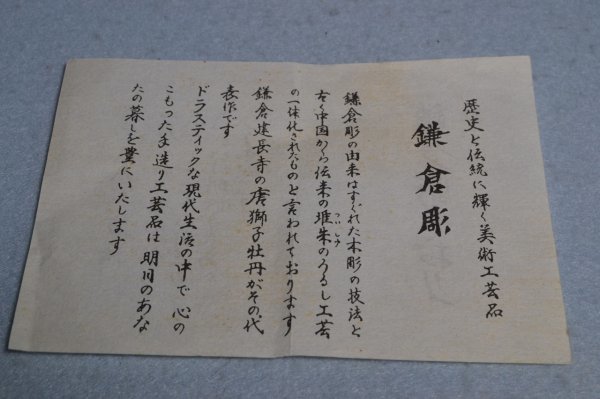 歴史と伝統に輝く美術工芸品
鎌倉彫
鎌倉彫の由来はすぐれた木彫の技法と
古く中国から伝来の堆朱のうるし工芸
ついしゅ
の一体化されたものと言われております
鎌倉建長寺の唐獅子牡丹がその代
表作です
ドラスティックな現代生活の中で心の
こもった手造り工芸品は明日のあな
たの暮しを豊にいたします